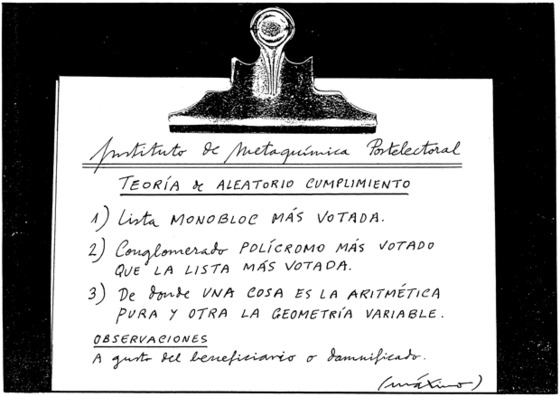 Instituto de Metaquímica Postelectoral
TEORÍA de ALEATORIO CUMPLIMIENTO
1) Lista MONOBLOC MÁS VOTADA.
2) Conglomerado POLÍCROMO MÁS VOTADO
QUE LA LISTA MÁS VOTADA.
3) De donde UNA COSA ES LA ARITMÉTICA
PURA Y OTRA LA GEOMETRÍA VARIABLE.
OBSERVACIONES
A gusto del beneficiario o damnificado.
(máximo)